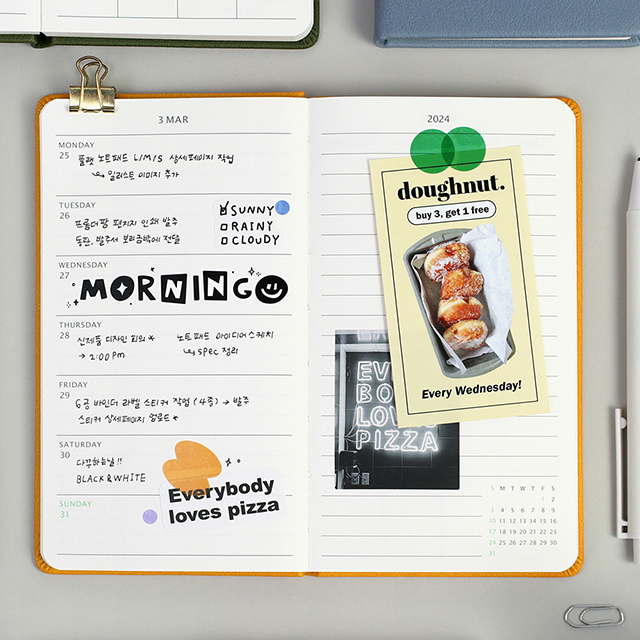 3 MAR
MONDAY
25
플랫 노트패드 L/M/S 상세페이지 작업
↳ 일러스트 이미지 추가
TUESDAY
26
프롬더팜 편지지 인쇄 발주
동판, 발주서 보리금박에 전달
☑ SUNNY
☐ RAINY
☐ CLOUDY
WEDNESDAY
27
MORNING
THURSDAY
28
신제품 디자인 회의 *
→ 2:00 pm
노트패드 아이디어 스케치
↳ spec 정리
FRIDAY
29
6공 바인더 라벨 스티커 작업 (4종) → 발주
스티커 상세페이지 업로드 *
SATURDAY
30
다꾸하는날!!
BLACK & WHITE
SUNDAY
31
Everybody
loves pizza
2024
doughnut.
buy 3, get 1 free
Every Wednesday!
EV
BO
LOV
PIZZA
S M T W T F S
1 2
3 4 5 6 7 8 9
10 11 12 13 14 15 16
17 18 19 20 21 22 23
24 25 26 27 28 29 30
31